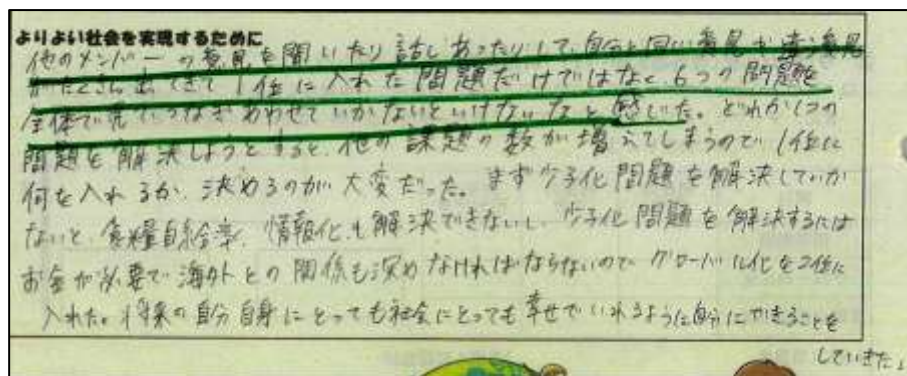 よりよい社会を実現するために
他のメンバーの意見を聞いたり話しあったりして、自分と同じ意見か違う意見
がたくさん出てきて1位に入れた問題だけではなく6つの問題を
全体で見てつなぎあわせていかないといけないなと感じた。どれか1つの
問題を解決しようとすると、他の課題の数が増えてしまうので1位に
何を入れるか、決めるのが大変だった。まず少子化問題を解決していか
ないと、食糧自給率、情報化も解決できないし、少子化問題を解決するには
お金が必要で海外との関係も深めなければならないので グローバル化を2位に
入れた。将来の自分自身にとっても社会にとっても幸せでいれるように自分にできることを
していきたい